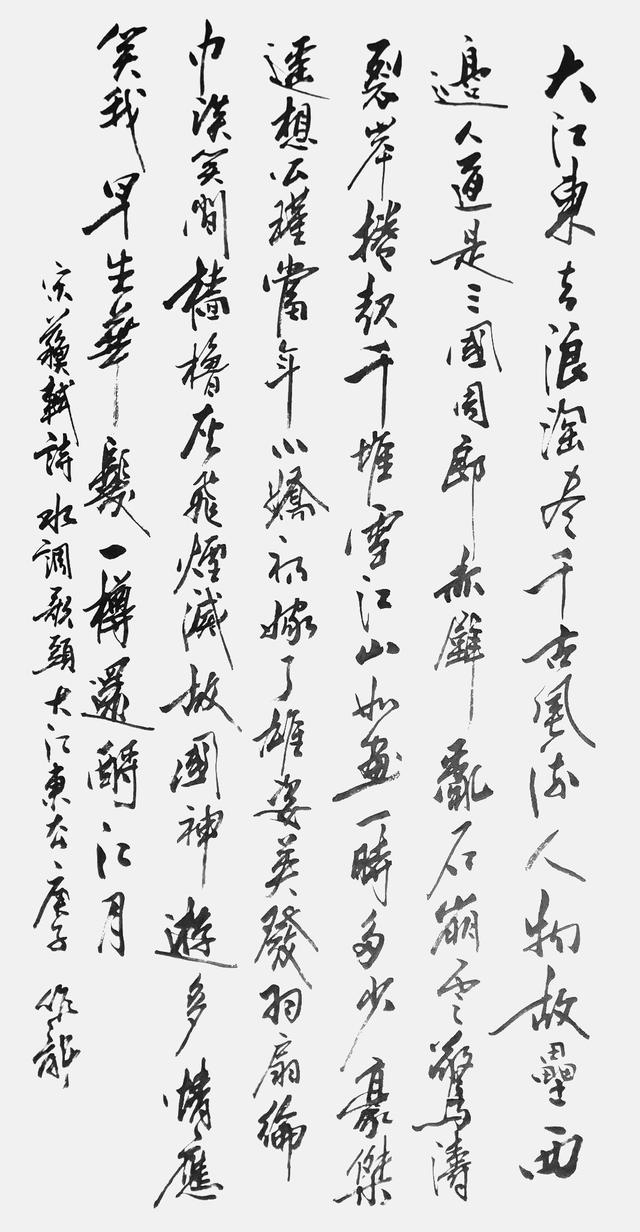 大江東去浪淘尽千古風流人物故壘西
邊人道是三國周郎赤壁亂石崩雲驚濤
裂岸捲起千堆雪江山如畫一時多少豪傑
遥想公瑾當年小嬌初嫁了雄姿英發羽扇綸
巾談笑間檣櫓灰飛煙滅故國神遊多情應
笑我早生華髮一樽還酹江月
宋蘇軾詩水調歌頭大江東去庚子